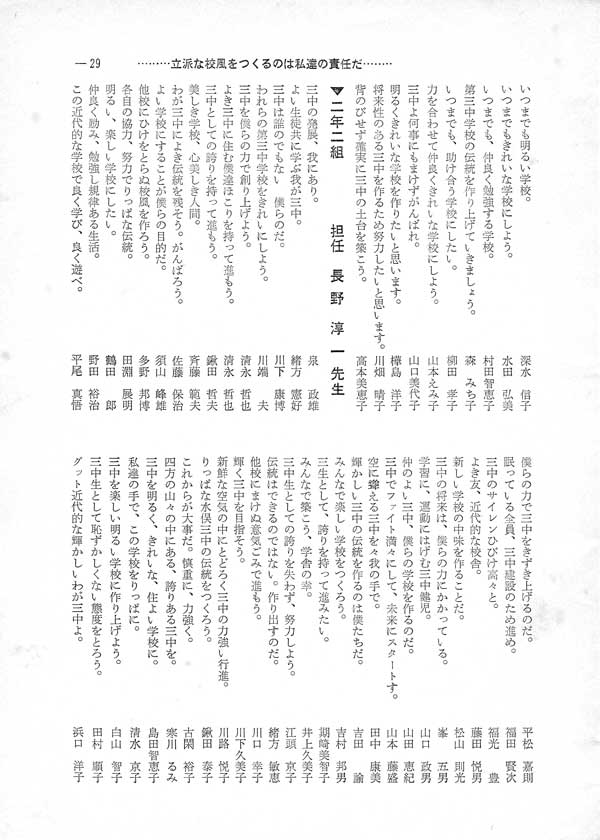 — 29
………立派な校風をつくるのは私達の責任だ………
いつまでも明るい学校。 深水 信子
いつまでもきれいな学校にしよう。 水田 弘美
いつまでも、仲良く勉強する学校。 村田智恵子
第三中学校の伝統を作り上げていきましょう。 森 みち子
いつまでも、助け合う学校にしたい。 柳田 孝子
力を合わせて仲良くきれいな学校にしよう。 山本えみ子
三中よ何事にもまけずがんばれ。 山口美代子
明るくきれいな学校を作りたいと思います。 樺島 洋子
将来性のある三中を作るため努力したいと思います。 川畑 晴子
背のびせず確実に三中の土台を築こう。 高本美恵子
▼二年二組 担任 長野淳一先生
三中の発展、我にあり。 泉 政雄
よい生徒共に学ぶ我が三中。 緒方 憲好
三中は誰のでもない 僕らのだ。 川下 康博
われらの第三中学校をきれいにしよう。 川端 夫
三中を僕らの力で創り上げよう。 清永 哲也
よき三中に住む僕達ほこりを持って進もう。 清永 哲也
三中としての誇りを持って進もう。 鍬田 哲夫
美しき学校、心美しき人間。 斉藤 範夫
わが三中によき伝統を残そう。がんばろう。 佐藤 保治
よい学校にすることが僕らの目的だ。 須山 峰雄
他校にひけをとらぬ校風を作ろう。 多野 邦博
各自の協力、努力でりっぱな伝統。 田淵 展明
明るい、楽しい学校にしたい。 鶴田 郎
仲良く励み、勉強し規律ある生活。 野田 裕治
この近代的な学校で良く学び、良く遊べ。 平尾 真悟
僕らの力で三中をきずき上げるのだ。 平松 嘉則
眠っている全員、三中建設のため進め。 福田 賢次
三中のサイレンひびけ高々と。 福光 豊
よき友、近代的な校舎。 藤田 悦男
新しい学校の中味を作ることだ。 松山 則光
三中の将来は、僕らの力にかかっている。 峯 五男
学習に、運動にはげむ三中健児。 山口 政男
仲のよい三中、僕らの学校を作るのだ。 山田 恵紀
三中でファイト満々にして、未来にスタートす。 山本 藤盛
空に聳える三中を々我の手で。 田中 康美
輝かしい三中の伝統を作るのは僕たちだ。 吉田 諭
みんなで楽しい学校をつくろう。 吉村 邦男
三生として、誇りを持って進みたい。 期崎美智子
みんなで築こう、学舎の幸。 井上久美子
三中生としての誇りを失わず、努力しよう。 江頭 京子
伝統はできるのではない。作り出すのだ。 緒方 敏恵
他校にまけぬ意気ごみで進もう。 川口 幸子
輝く三中を目指そう。 川下久美子
新鮮な空気の中にとどろく三中の力強い行進。 川路 悦子
りっぱな水俣三中の伝統をつくろう。 鍬田 泰子
これからが大事だ。慎重に、力強く。 古閑 裕子
四方の山々の中にある、誇りある三中を。 寒川 るみ
三中を明るく、きれいな、住よい学校に。 島田智恵子
私達の手で、この学校をりっぱに。 清水 京子
三中を楽しい明るい学校に作り上げよう。 白山 智子
三中生として恥ずかしくない態度をとろう。 田村 順子
グット近代的な輝かしいわが三中よ。 浜口 洋子